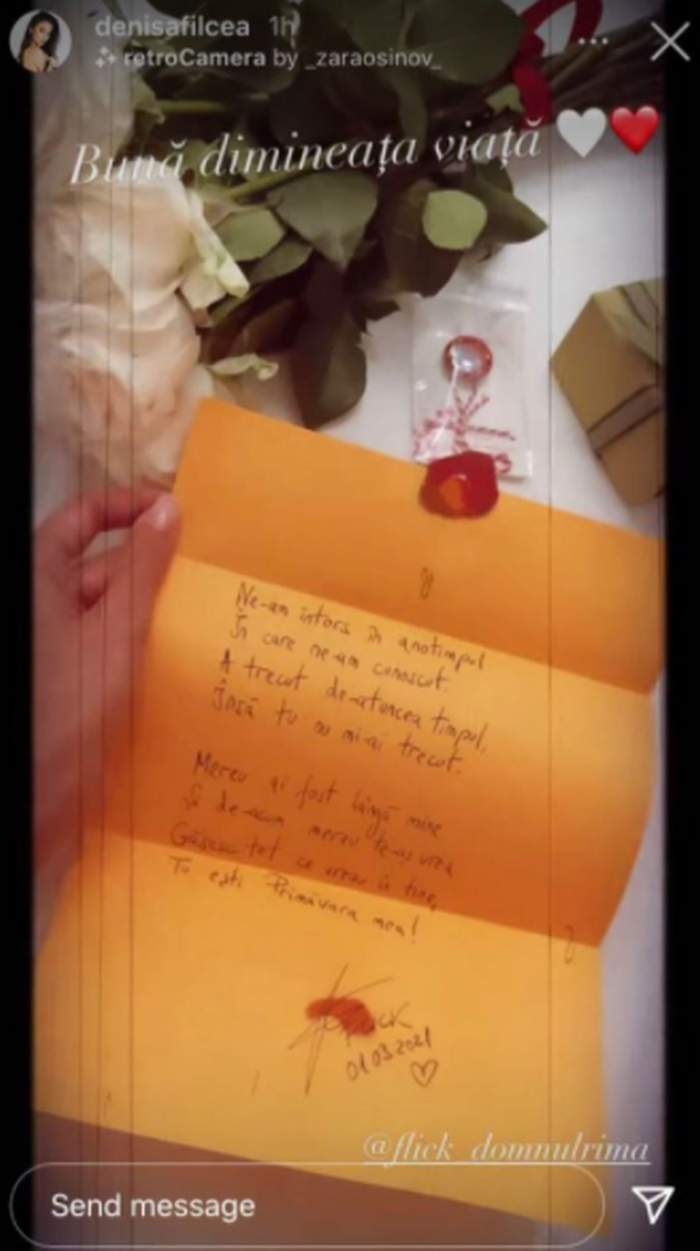 denisafilcea 1h
retroCamera by _zaraosinov_
Bună dimineața viață
Ne-am întors în anotimpul
În care ne-am conoscut.
A trecut de-atuncea timpul,
Însă tu nu mi-ai trecut.
Mereu ai fost lângă mine
Și de-acum mereu te-aș vrea
Găsesc tot ce vreau în tine,
Tu ești Primăvara mea!
Flick
01.03.2021
@flick_domnulrima
Send message